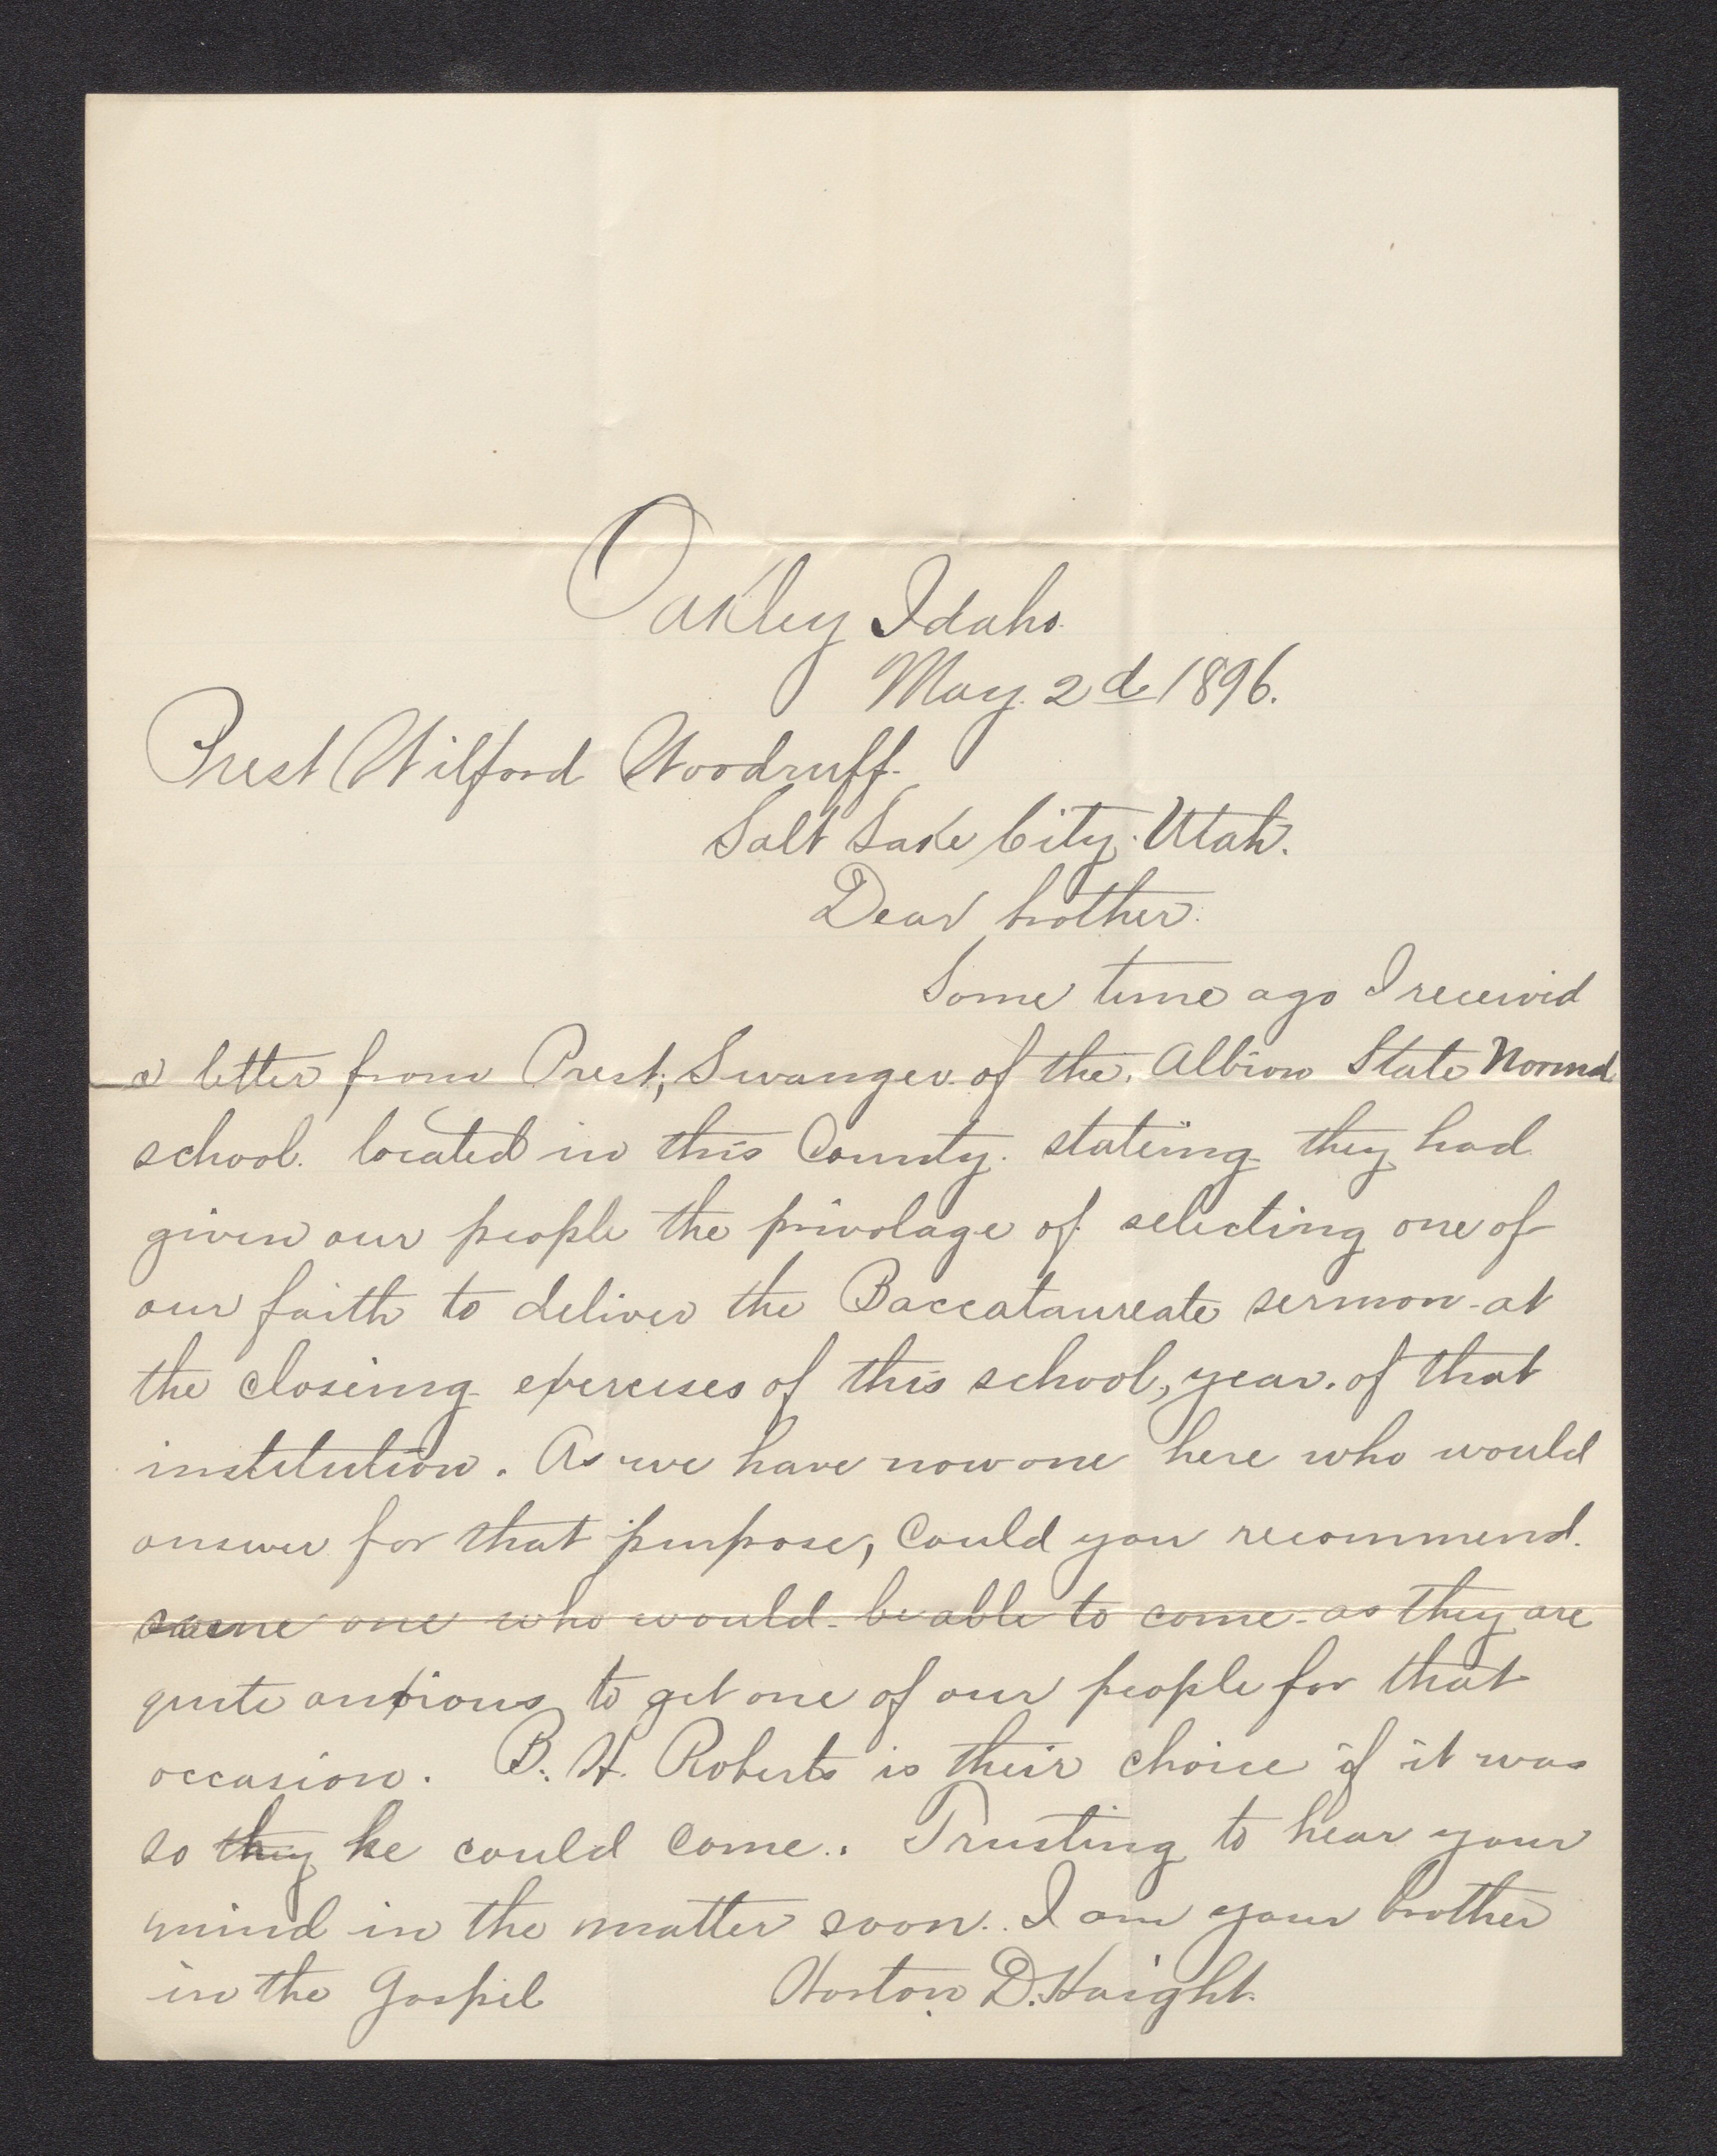 Oakley Idaho
May. 2d 1896.
Prest Wilford Woodruff.
Salt Lake City. Utah.
Dear brother.
Some time ago I receivid
a letter from Prest; Swanger of the, Albion State Normal
school. located in this County. stateing they had
given our people the privolage of selecting one of
our faith to deliver the Baccataureate sermon at
the closeing exercises of this school, year. of that
institution. As we have now one here who would
answer for that purpose, Could you recommend.
some one who would be able to come as they are
quite anxious to get one of our people for that
occasion. B. H. Roberts is their choice if it was
so they he could come.. Trusting to hear your
mind in the matter soon.. I am your brother
in the Gospel Horton D. Haight.